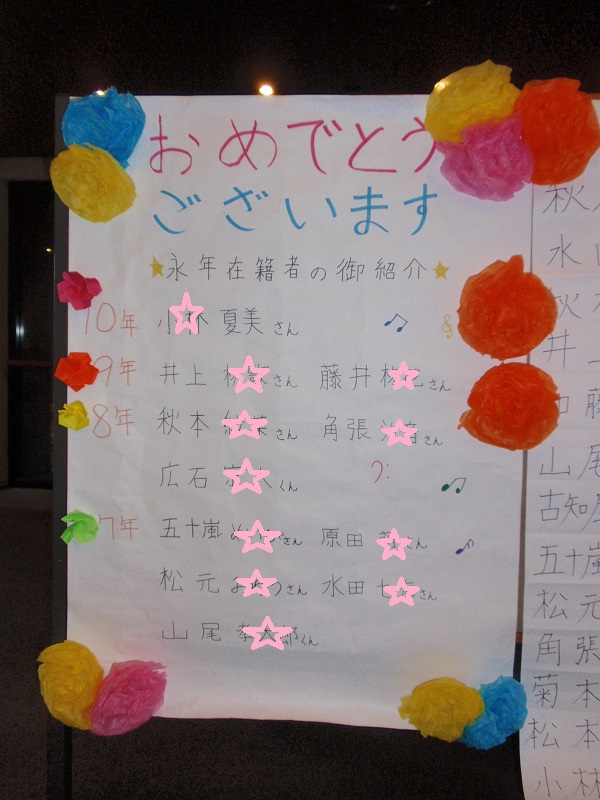 おめでとう
ございます
★永年在籍者の御紹介★
10年 小林 夏美さん
9年 井上 さん 藤井 さん
8年 秋本 さん 角張 さん
広石 くん
7年 五十嵐 さん 原田 さん
松元 さん 水田 さん
山尾 くん
秋
水
秋
井
藤
山尾
古知屋
五十嵐
松元
角張
菊本
松本
小林